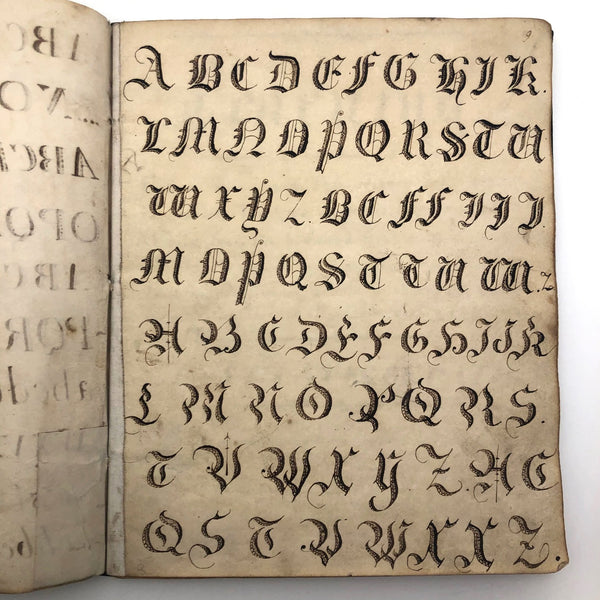 9
A B C D E F G H I K.
L M N O P Q R S T U
W X Y Z. B C F F I I J.
M O P Q S T T U W. Z
A B C D E F G H I J K
L M N O P Q R S.
T V W X Y Z. A C
Q S T V W X X Z.
ABC
NO
ABC
OPQ
ABC
PQR
abcd